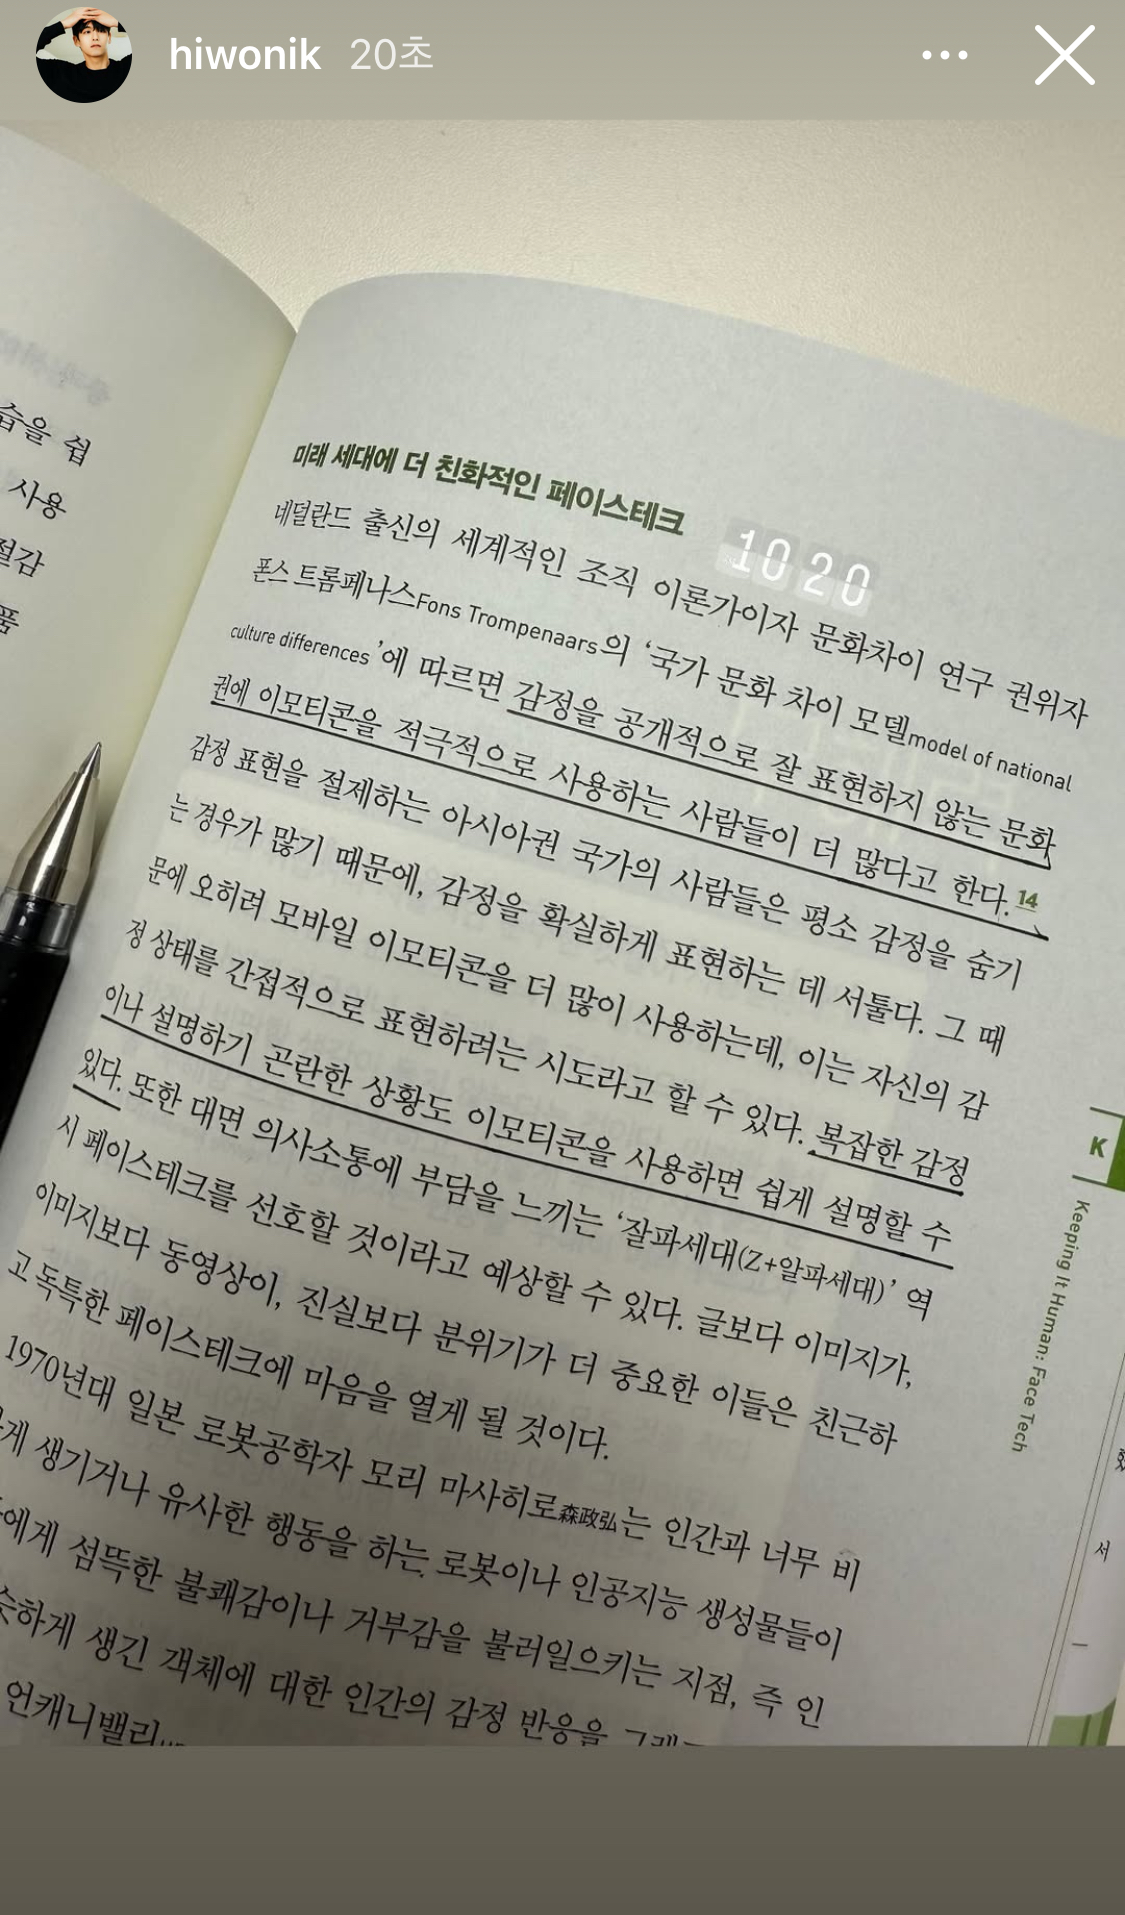 hiwonik 20초
습을 쉽
사용
절감
품
미래 세대에 더 친화적인 페이스테크
10 20
네덜란드 출신의 세계적인 조직 이론가이자 문화차이 연구 권위자
폰스 트롬페나스Fons Trompenaars의 ‘국가 문화 차이 모델model of national
culture differences’에 따르면 감정을 공개적으로 잘 표현하지 않는 문화
권에 이모티콘을 적극적으로 사용하는 사람들이 더 많다고 한다.14
감정 표현을 절제하는 아시아권 국가의 사람들은 평소 감정을 숨기
는 경우가 많기 때문에, 감정을 확실하게 표현하는 데 서툴다. 그 때
문에 오히려 모바일 이모티콘을 더 많이 사용하는데, 이는 자신의 감
정 상태를 간접적으로 표현하려는 시도라고 할 수 있다. 복잡한 감정
이나 설명하기 곤란한 상황도 이모티콘을 사용하면 쉽게 설명할 수
있다. 또한 대면 의사소통에 부담을 느끼는 ‘잘파세대(Z+알파세대)’ 역
시 페이스테크를 선호할 것이라고 예상할 수 있다. 글보다 이미지가,
이미지보다 동영상이, 진실보다 분위기가 더 중요한 이들은 친근하
고 독특한 페이스테크에 마음을 열게 될 것이다.
1970년대 일본 로봇공학자 모리 마사히로森政弘는 인간과 너무 비
하게 생기거나 유사한 행동을 하는 로봇이나 인공지능 생성물들이
에게 섬뜩한 불쾌감이나 거부감을 불러일으키는 지점, 즉 인
슷하게 생긴 객체에 대한 인간의 감정 반응을
언캐니밸리
K
Keeping It Human: Face Tech
서